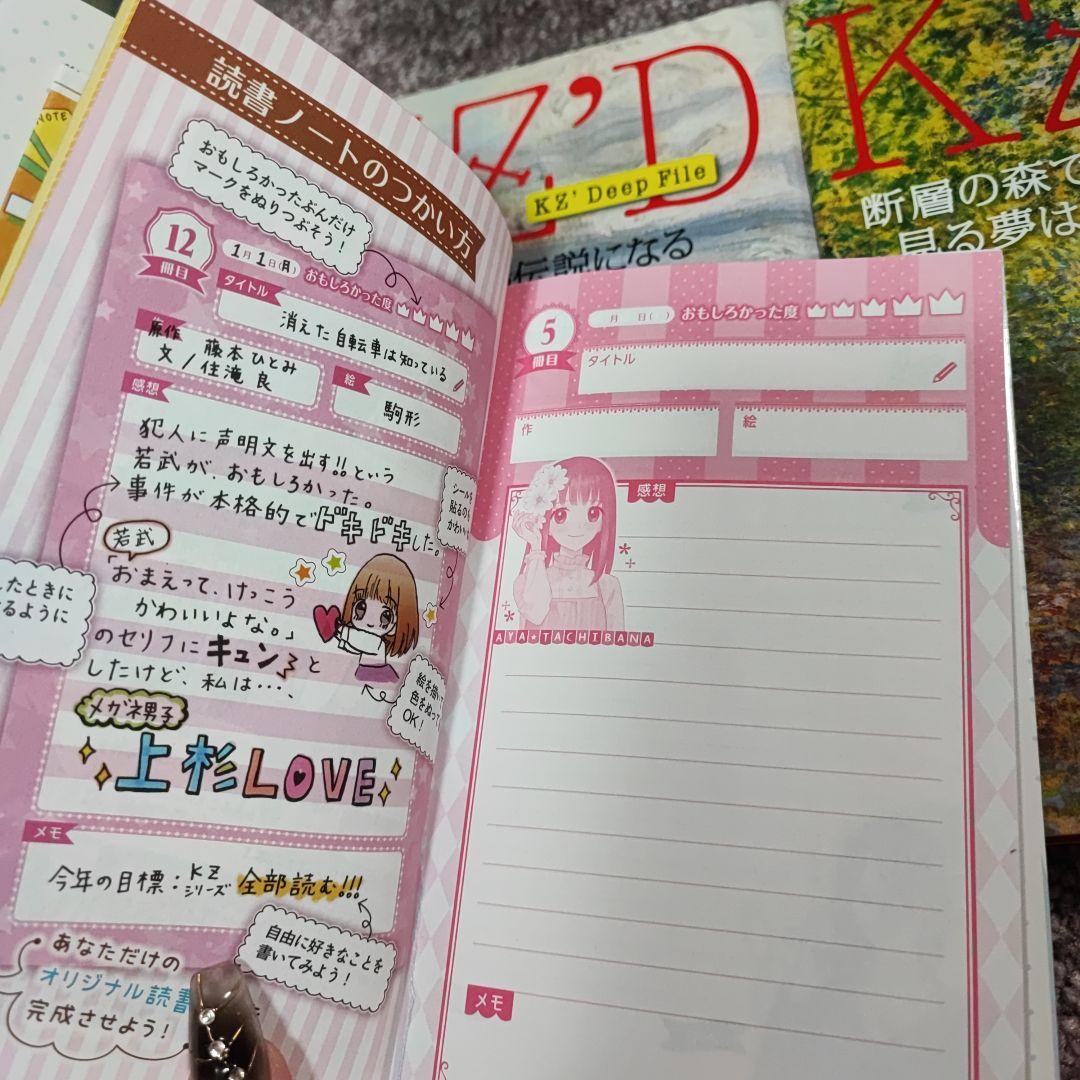 読書ノートのつかい方
おもしろかったぶんだけ
マークをぬりつぶそう!
12
冊目
1月1日(月)
おもしろかった度
タイトル
消えた自転車は知っている
原作
文
藤本ひとみ
/住滝 良
絵
駒形
感想
犯人に声明文を出す!!という
若武が、おもしろかった。
事件が本格的でドキドキした。
若武
「おまえって、けっこう
かわいいよな。」
のセリフにキュンと
したけど、私は…、
メガネ男子
上杉LOVE
シールを
貼るのも
かわいい
したときに
るように
絵を描いて
色をぬって
OK!
メモ
今年の目標:KZシリーズ 全部読む!!!
自由に好きなことを
書いてみよう!
あなただけの
オリジナル読書
完成させよう!
5
冊目
月 日( )
おもしろかった度
タイトル
作
絵
感想
AYA★TACHIBANA
メモ
NOTE
KZ'D
KZ' Deep File
伝説になる
KZ
断層の森で
見る夢は